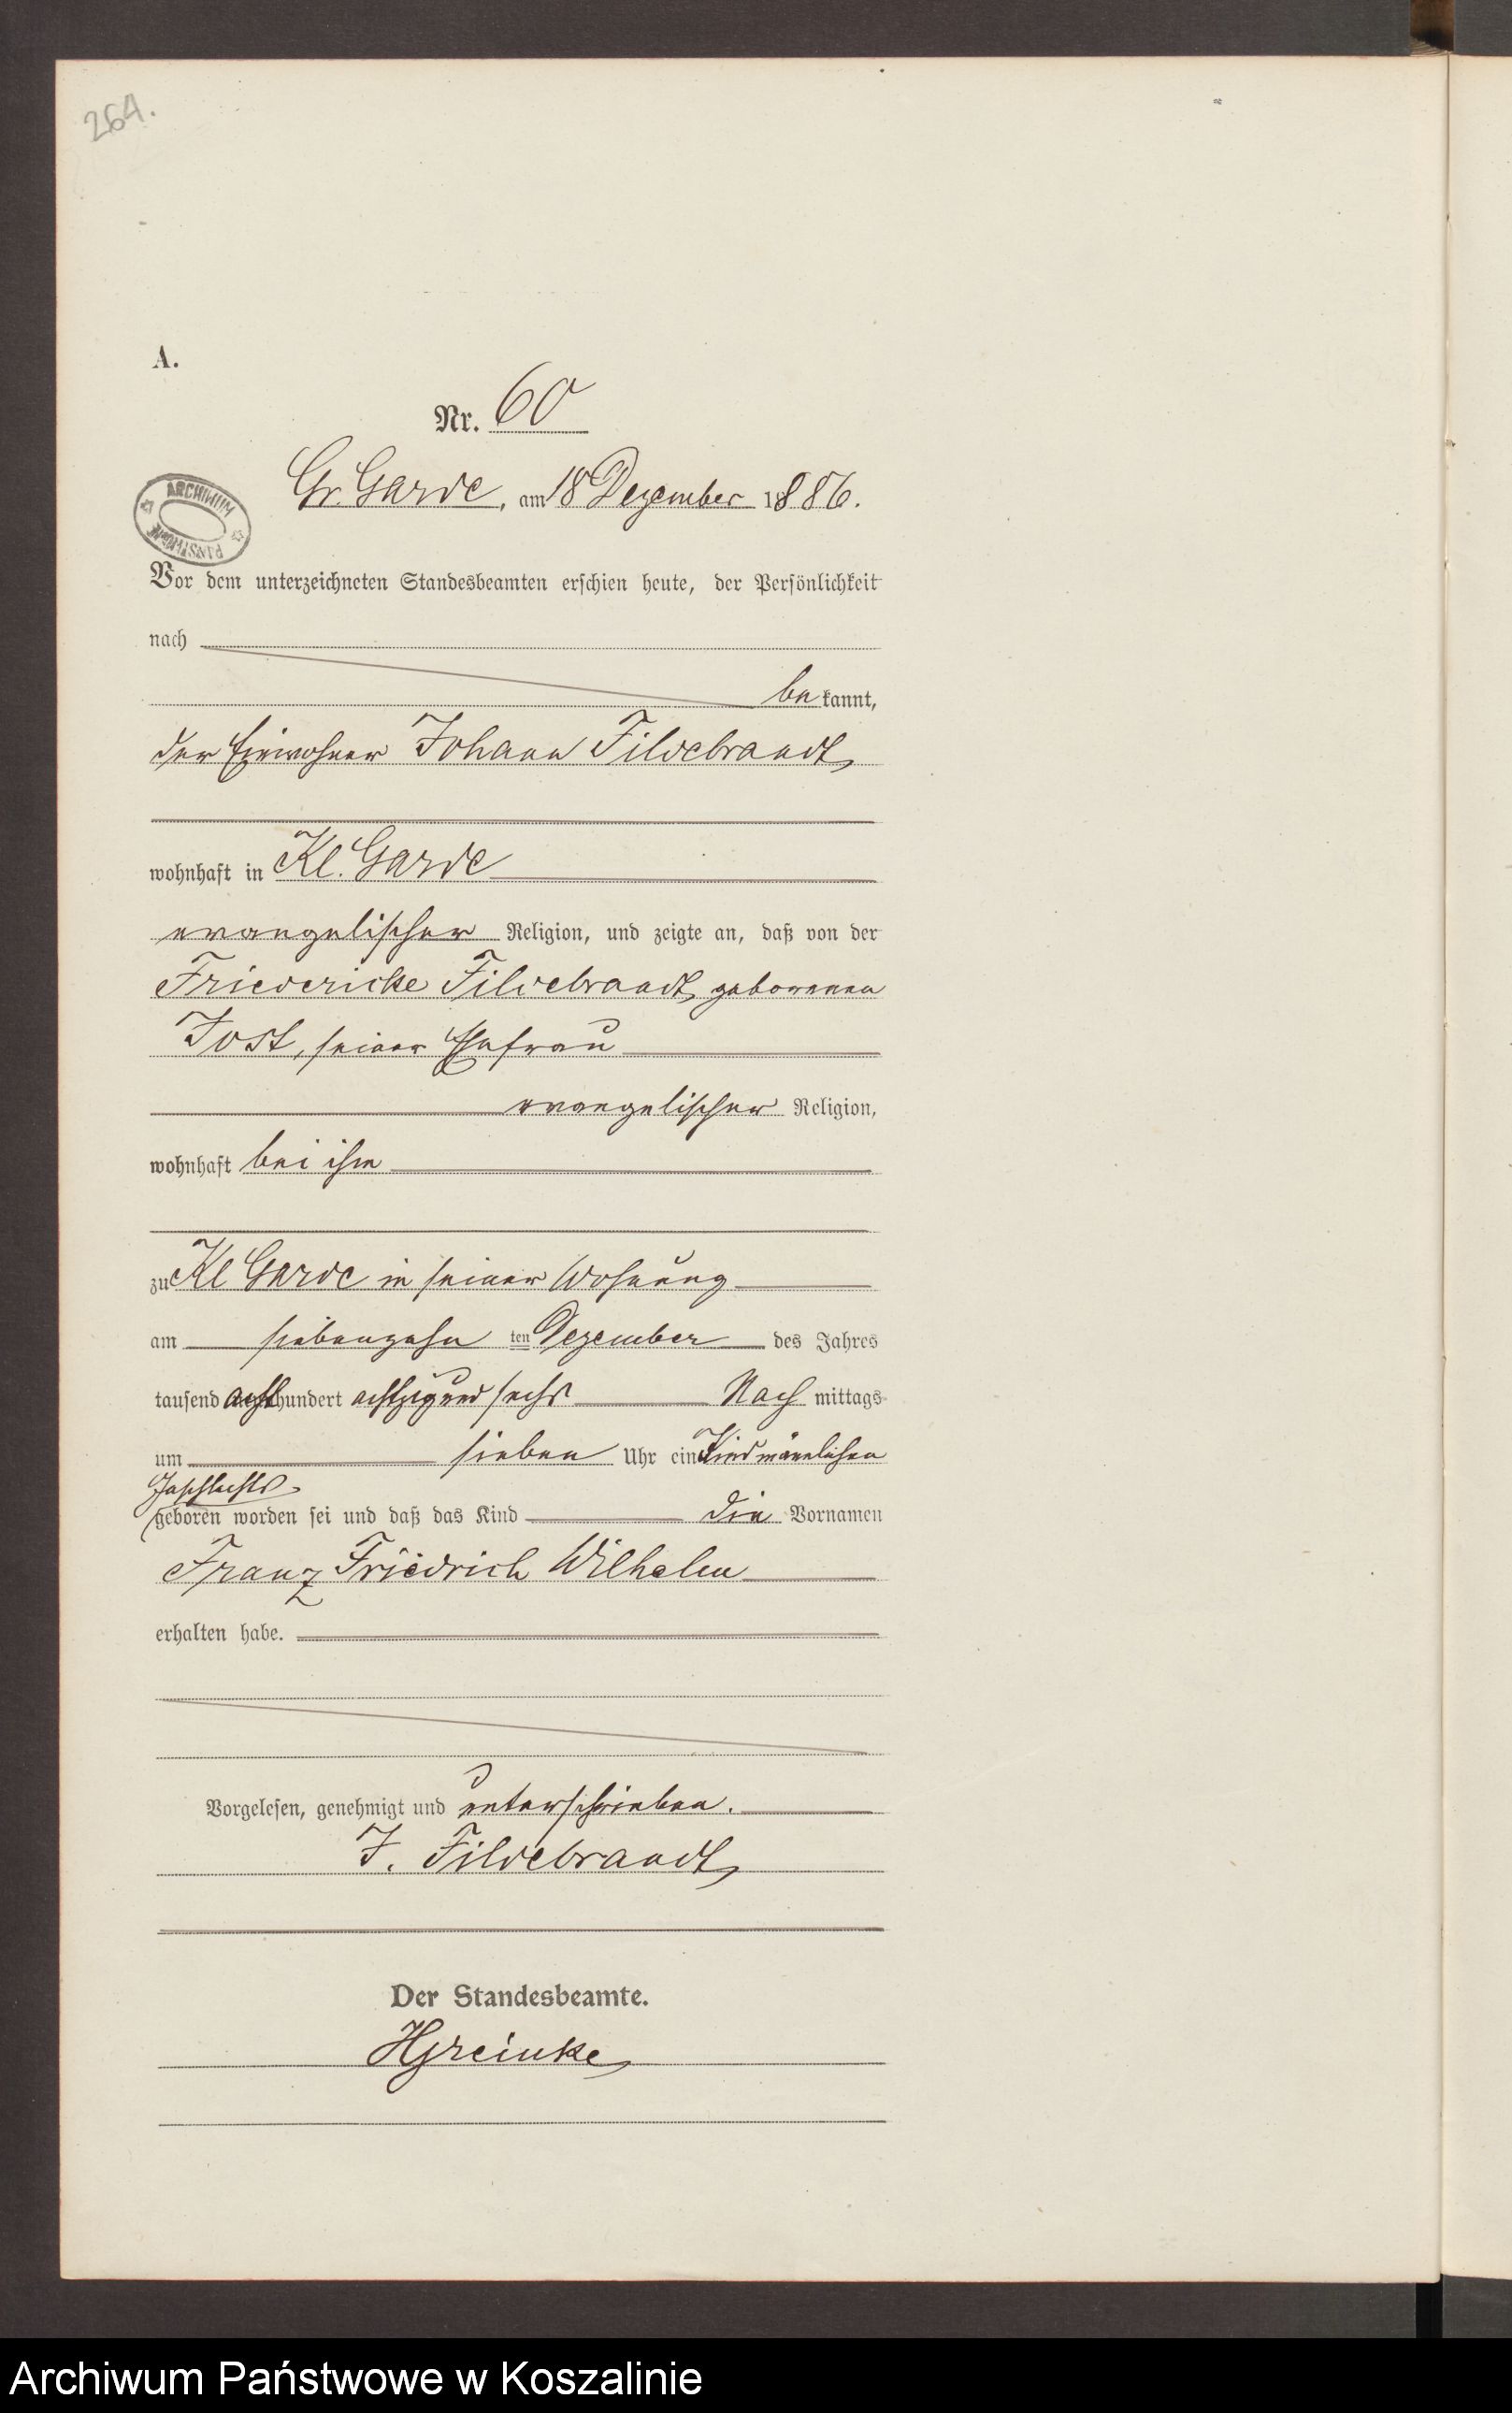 264.
A.
Nr. 60
ARCHIWUM
PAŃSTWOWE
Gr. Garde, am 18 Dezember 1886.
Vor dem unterzeichneten Standesbeamten erschien heute, der Persönlichkeit
nach
bekannt,
der Einwohner Johann Fildebrandt,
wohnhaft in Kl. Garde
evangelischer Religion, und zeigte an, daß von der
Friedericke Fildebrandt, geborenen
Jost, seiner Ehefrau
evangelischer Religion,
wohnhaft bei ihm
zu Kl Garde in seiner Wohnung
am siebenzehn ten Dezember des Jahres
tausend acht hundert achtzig und sechs Nach mittags
um sieben Uhr ein Kind männlichen
Geschlechts
geboren worden sei und daß das Kind die Vornamen
Franz Friedrich Wilhelm
erhalten habe.
Vorgelesen, genehmigt und unterschrieben.
J. Fildebrandt,
Der Standesbeamte.
Archiwum Państwowe w Koszalinie